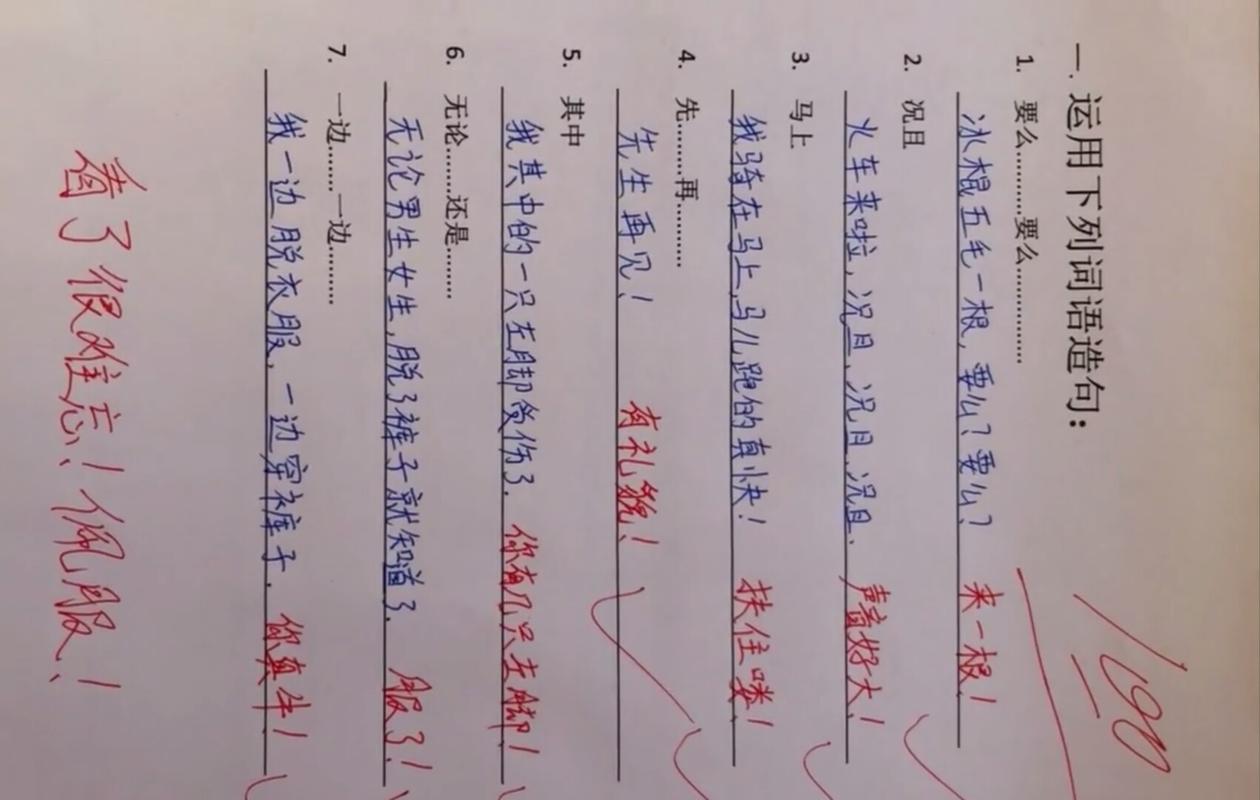 一. 运用下列词语造句:
1. 要么………要么…………
冰棍五毛一根，要么？要么？ 来一根！
2. 况且
火车来啦，况且，况且，况且． 声音好大！
3. 马上
我骑在马上，马儿跑的真快！ 扶住喽！
4. 先………再………
先生再见！ 有礼貌！
5. 其中
我其中的一只左脚受伤了． 你有几只左脚！
6. 无论……还是……
无论男生女生，脱了裤子就知道了． 服了！
7. 一边……一边……
我一边脱衣服，一边穿裤子． 你真牛！
看了很难忘！佩服！